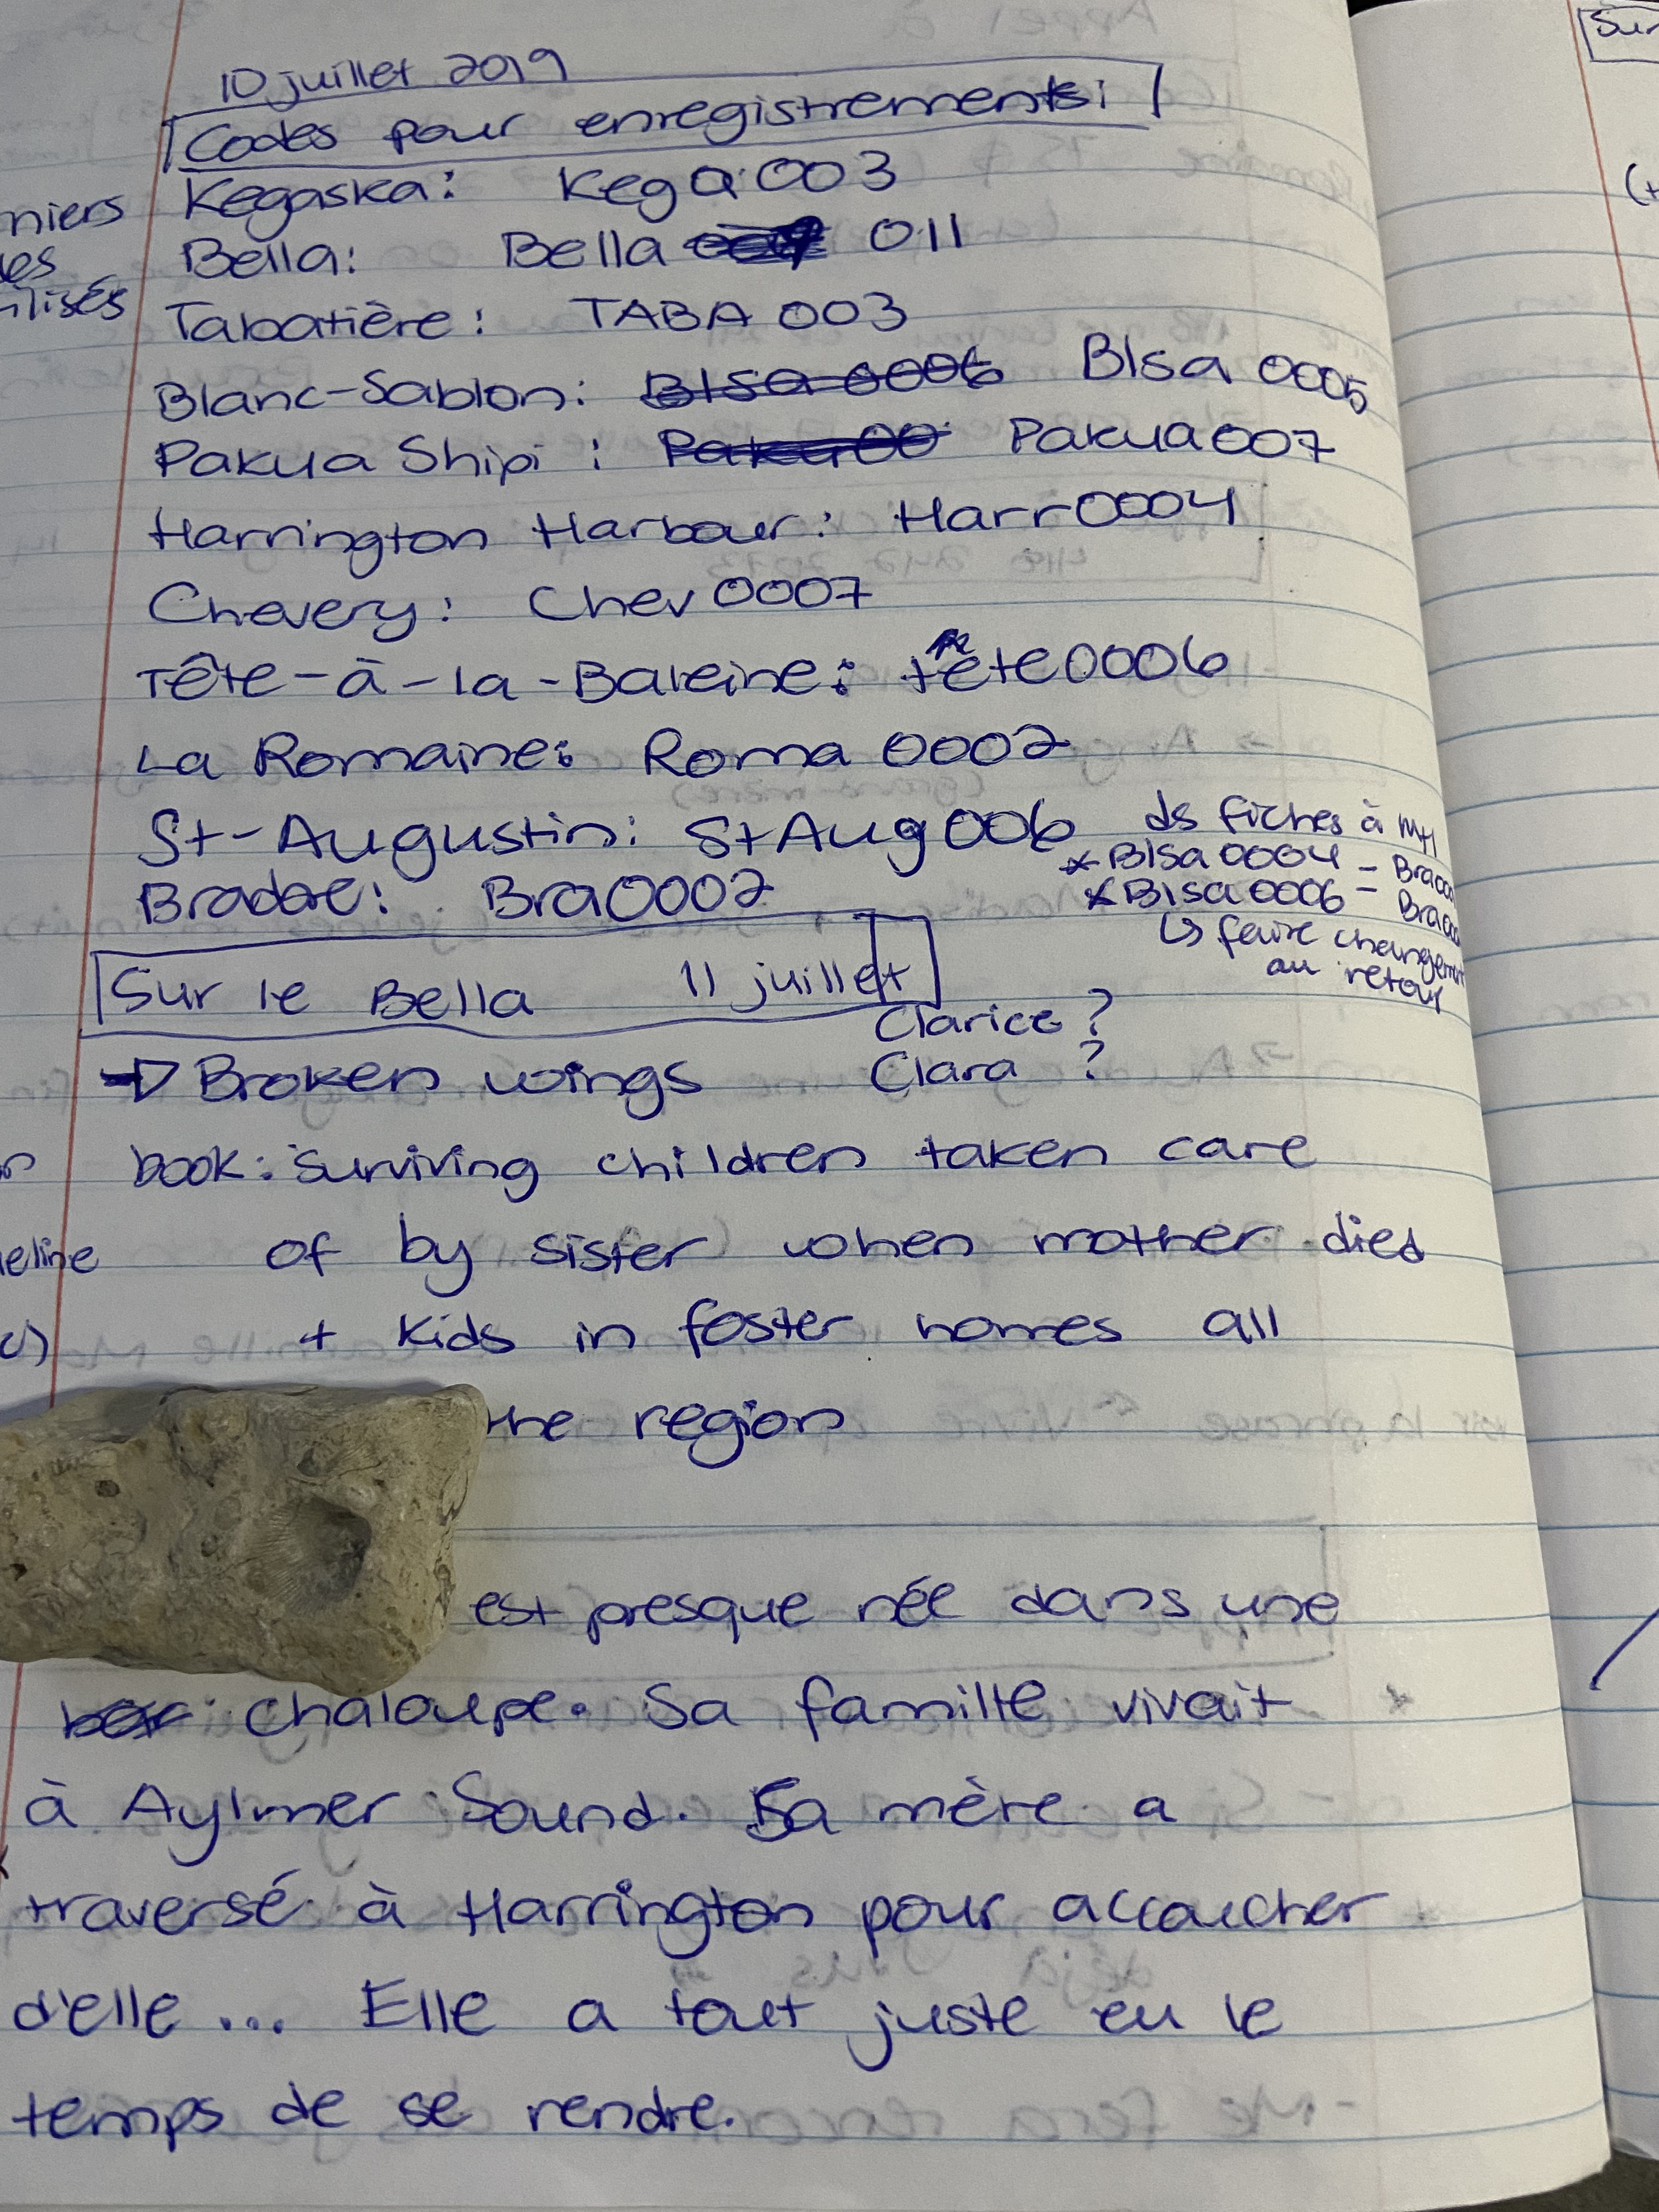 10 juillet 2019
Codes pour enregistrements:
Kegaska: Kega003
niers
Bella: Bella 011
es
ilisés
Tabatière: TABA 003
Blanc-Sablon: Blsa 0006 Blsa 0005
Pakua Shipi: Pakua00 Pakua007
Harrington Harbour: Harr0004
Chevery: Chev 0007
Tête-à-la-Baleine: tête0006
La Romaine: Roma 0002
St-Augustin: StAug006
ds fiches à Mtl
*Blsa 0004 - Bra00
*Blsa 0006 - Bra00
↳ faire changement
au retour
Bradore: Bra0002
Sur le Bella 11 juillet
Clarice ?
→ Broken wings Clara ?
book: surviving children taken care
of by sister when mother died
eline
+ kids in foster homes all
the region
est presque née dans une
chaloupe. Sa famille vivait
à Aylmer Sound. Sa mère a
traversé à Harrington pour accoucher
d'elle... Elle a tout juste eu le
temps de se rendre.
Sur